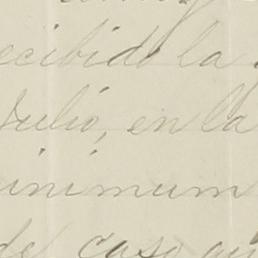 ecibido la
Julio, en la
inimum
del caso qu